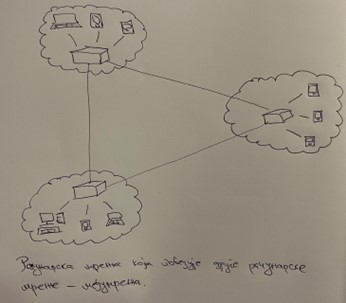 Рачунарска мрежа која повезује друге рачунарске
мреже – међумрежа.